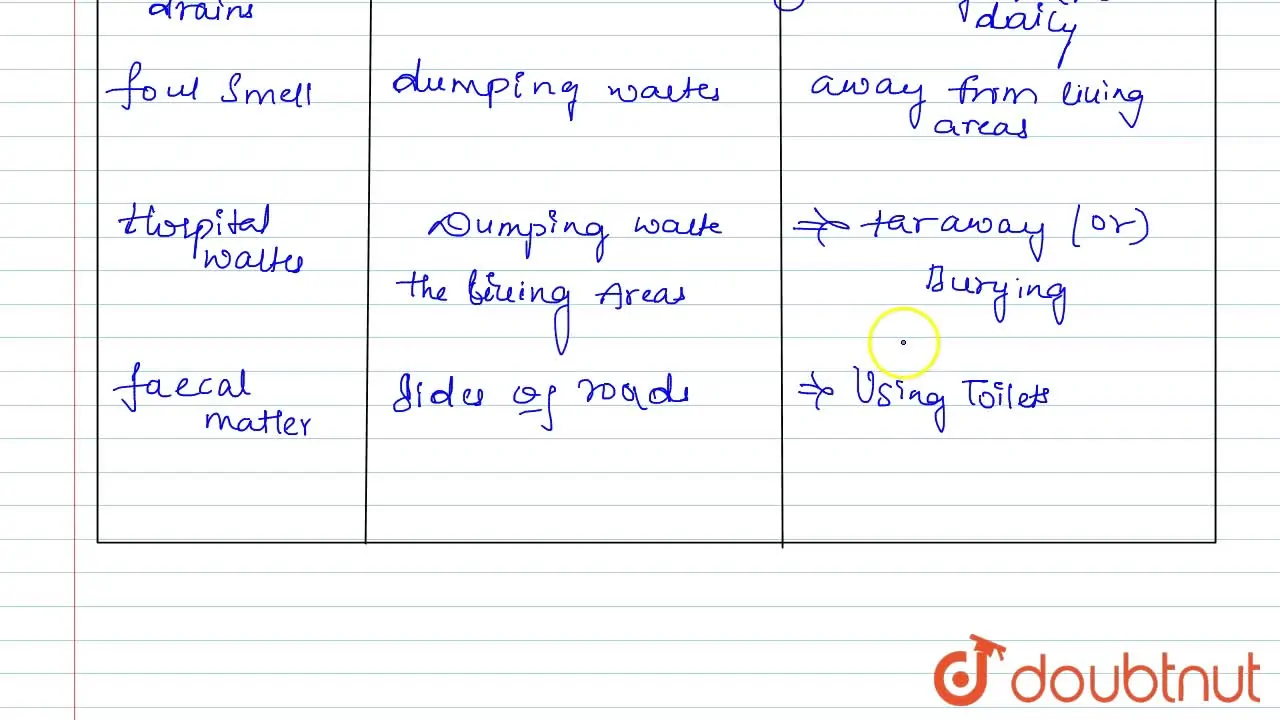 drains
daily
foul Smell
dumping wastes
away from living
areas
Hospital
wastes
Dumping waste
the living Areas
⇒ far away (or)
Burying
faecal
matter
Sides of roads
⇒ Using Toilets
doubtnut